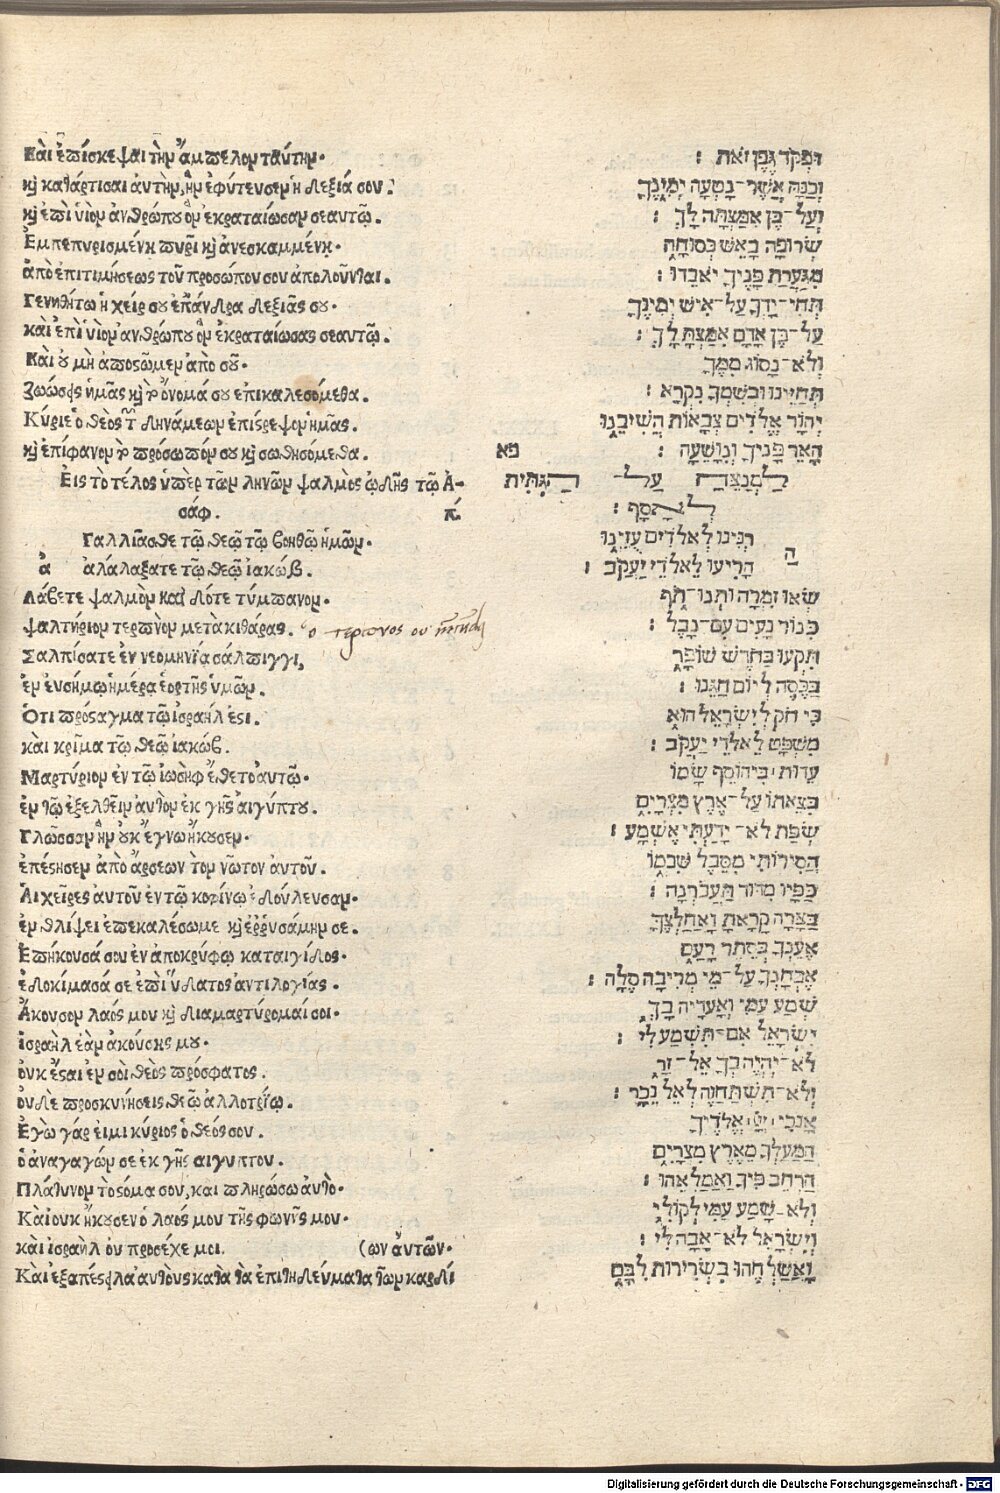 Καὶ ἐπίσκεψαι τὴν ἄμπελον ταύτην.
κỳ κατάρτισαι ἀυτὴν, ἣν ἐφύτευσεν ἡ δεξιά σου.
κỳ ἐπὶ ὑιὸν ἀνθρώπου ὃν ἐκραταίωσαν σεαυτῷ.
Ἐμπεπυρισμένη πυρὶ κỳ ἀνεσκαμμένη.
ἀπὸ ἐπιτιμήσεως τοῦ προσώπου σου ἀπολοῦνται.
Γενηθήτω ἡ χείρ σου ἐπ' ἄνδρα δεξιᾶς σου.
καὶ ἐπὶ ὑιὸν ἀνθρώπου ὃν ἐκραταίωσας σεαυτῷ.
Καὶ ου μὴ ἀποστῶμεν ἀπὸ σοῦ.
ζωώσεις ἡμᾶς κỳ τὸ ὄνομά σου ἐπικαλεσόμεθα.
Κύριε ὁ θεὸς τῶν δηνάμεων ἐπίστρεψον ἡμᾶς.
κỳ ἐπίφανον τὸ πρόσωπόν σου κỳ σωθησόμεθα.
Εις τὸ τέλος ὑπὲρ τῶν ληνῶν ψαλμὸς ᾠδῆς τῷ Ἀ-
σάφ. π.
Γαλλιᾶσθε τῷ θεῷ τῷ βοηθῷ ἡμῶν.
ἀ ἀλάλαξατε τῷ θεῷ ἰακώβ.
Λάβετε ψαλμὸν καὶ δότε τύμπανον.
ψαλτήριον τερπνὸν μετὰ κιθάρας. ὁ τερπνος ου
Σαλπίσατε ἐν νεομηνίᾳ σάλπιγγι,
ἐν ἐυσήμῳ ἡμέρᾳ ἑορτῆς ὑμῶν.
Ὅτι πρόσταγμα τῷ ἰσραήλ ἐστι.
καὶ κρίμα τῷ θεῷ ἰακώβ.
Μαρτύριον ἐν τῷ ἰωσὴφ ἔθετο ἀυτῷ.
ἐν τῷ ἐξελθεῖν ἀυτὸν ἐκ γῆς ἀιγύπτου.
Γλῶσσαν ἣν ὀυκ ἔγνω ἤκουσεν.
ἐπέστησεν ἀπὸ ἄρσεων τὸν νῶτον ἀυτοῦ.
Ἁι χεῖρες ἀυτοῦ ἐν τῷ κοφίνῳ ἐδούλευσαν.
ἐν θλίψει ἐπεκαλέσω με κỳ ἐρρυσάμην σε.
Ἐπήκουσά σου ἐν ἀποκρύφῳ καταιγίδος.
ἐδοκίμασά σε ἐπὶ ὕδατος ἀντιλογίας.
Ἄκουσον λαός μου κỳ διαμαρτύρομαί σοι.
ἰσραὴλ ἐὰν ἀκούσῃς μου.
ὀυκ ἔσται ἐν σοὶ θεὸς πρόσφατος.
ὀυδε προσκυνήσεις θεῷ ἀλλοτρίῳ.
Ἐγὼ γάρ ἐιμι κύριος ὁ θεός σου.
ὁ ἀναγαγών σε ἐκ γῆς αιγυπτου.
Πλάτυνον τὸ στόμα σου, και πληρώσω ἀυτὸ.
Καὶ ουκ ἤκουσεν ὁ λαός μου τῆς φωνῆς μου.
κὰι ἰσραὴλ ὀυ προσέχε μοι. (ων ἀυτῶν.
Καὶ ἐξαπέστειλα ἀυτοὺς κατὰ τὰ ἐπιτηδεύματα τῶν καρδι
וּפְקֹד גֶּפֶן זֹאת :
וְכַנָּה אֲשֶׁר־נָטְעָה יְמִינֶךָ
וְעַל־בֵּן אִמַּצְתָּה לָּךְ :
שְׂרוּפָה בָאֵשׁ כְּסוּחָה
מִגַּעֲרַת פָּנֶיךָ יֹאבֵדוּ :
תְּהִי־יָדְךָ עַל־אִישׁ יְמִינֶךָ
עַל־בֶּן אָדָם אִמַּצְתָּ לָּךְ :
וְלֹא־נָסוֹג מִמֶּךָּ
תְּחַיֵּינוּ וּבְשִׁמְךָ נִקְרָא :
יְהוָֹה אֱלֹדִים צְבָאוֹת הֲשִׁיבֵנוּ
הָאֵר פָּנֶיךָ וְנִוָּשֵׁעָה : פא
לַמְנַצֵּחַ עַל־ הַגִּתִּית
לְאָסָף :
רַנִּינוּ לֵאלֹדִים עֻזֵּינוּ
הָרִיעוּ לֵאלֹדֵי יַעֲקֹב : ה
שְׂאוּ זִמְרָה וּתְנוּ־תֹף
כִּנּוֹר נָעִים עִם־נָבֶל :
תִּקְעוּ בַחֹדֶשׁ שׁוֹפָר
בַּכֶּסֶה לְיוֹם חַגֵּנוּ :
כִּי חֹק לְיִשְׂרָאֵל הוּא
מִשְׁפָּט לֵאלֹדֵי יַעֲקֹב :
עֵדוּת בִּיהוֹסֵף שָׂמוֹ
בְּצֵאתוֹ עַל־אֶרֶץ מִצְרָיִם
שְׂפַת לֹא־יָדַעְתִּי אֶשְׁמָע :
הֲסִירוֹתִי מִסֵּבֶל שִׁכְמוֹ
כַּפָּיו מִדּוּד תַּעֲבֹרְנָה :
בַּצָּרָה קָרָאתָ וָאֲחַלְּצֶךָּ
אֶעֶנְךָ בְּסֵתֶר רַעַם
אֶבְחָנְךָ עַל־מֵי מְרִיבָה סֶלָה :
שְׁמַע עַמִּי וְאָעִידָה בָּךְ
יִשְׂרָאֵל אִם־תִּשְׁמַע לִי :
לֹא־יִהְיֶה בְךָ אֵל־זָר
וְלֹא־תִשְׁתַּחֲוֶה לְאֵל נֵכָר :
אָנֹכִי יְיָ אֱלֹדֶיךָ
הַמַּעַלְךָ מֵאֶרֶץ מִצְרָיִם
הַרְחֶב פִּיךָ וַאֲמַלְאֵהוּ :
וְלֹא־שָׁמַע עַמִּי לְקוֹלִי
וְיִשְׂרָאֵל לֹא־אָבָה לִי :
וָאֲשַׁלְּחֵהוּ בִּשְׁרִירוּת לִבָּם
Digitalisierung gefördert durch die Deutsche Forschungsgemeinschaft - DFG